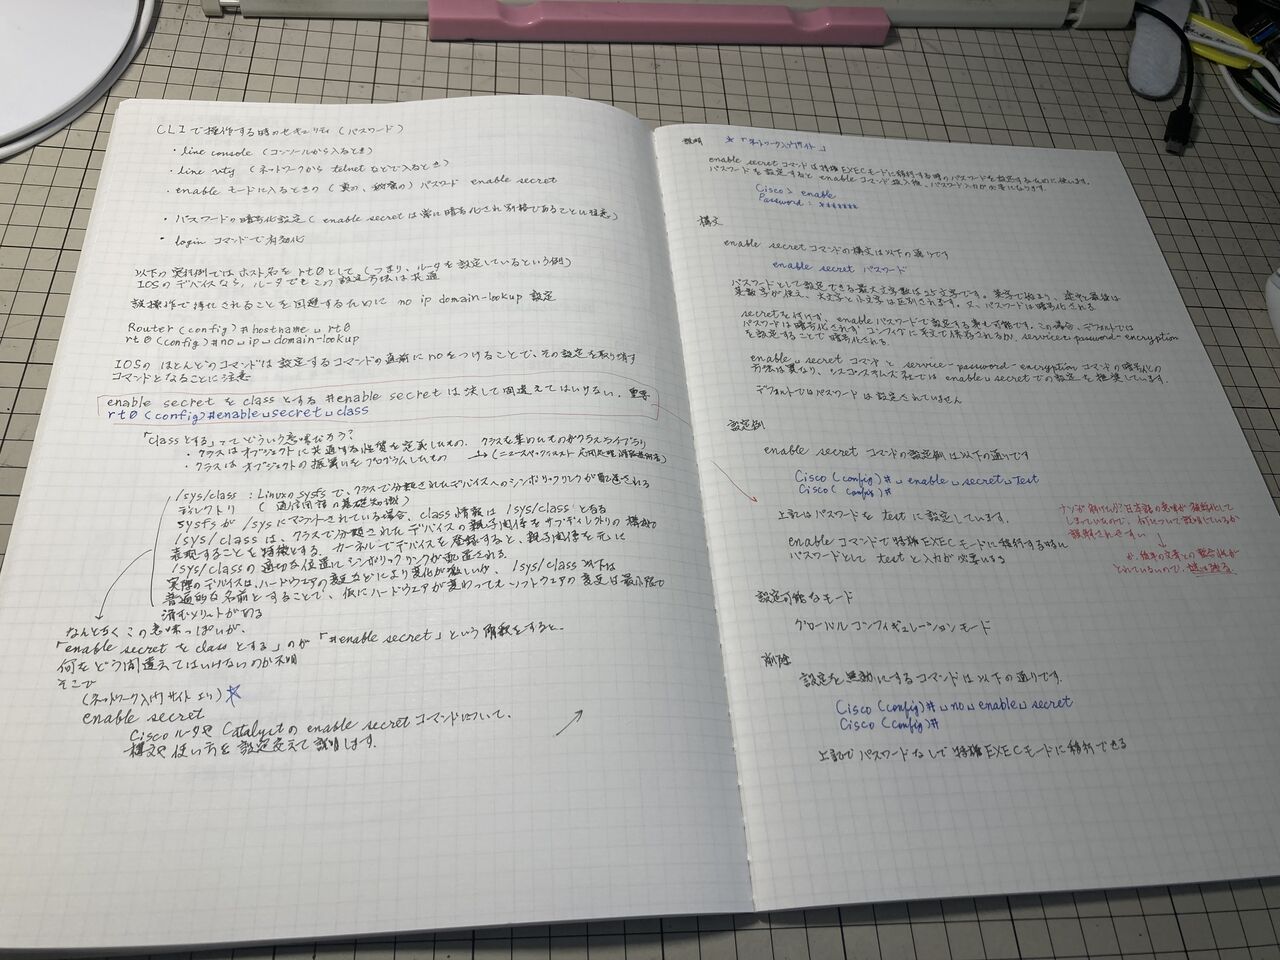 CLIで操作する時のセキュリティ(パスワード)
・line console (コンソールから入るとき)
・line vty (ネットワークから telnet などで入るとき)
・enable モードに入るときの(真の、秘密の) パスワード enable secret
・パスワードの暗号化設定( enable secret は常に暗号化され別格であることに注意)
・login コマンドで有効化
以下の実行例ではホスト名を rt0として (つまり、ルータを設定しているという例)
IOSのデバイスなら、ルータでもこの設定方法は共通
誤操作で待たされることを回避するために no ip domain-lookup 設定
Router (config) # hostname␣rt0
rt0 (config) # no␣ip␣domain-lookup
IOSの ほとんどのコマンドは 設定するコマンドの直前に noをつけることで、その設定を取り消す
コマンドとなることに注意
enable secret を class とする #enable secret は決して間違えてはいけない。重要
rt0 (config)#enable␣secret␣class
「classとする」って どういう意味だろう?
・クラスはオブジェクトに共通する性質を定義したもの。 クラスを集めたものがクラスライブラリ
・クラスは オブジェクトの振舞いをプログラムしたもの
/sys/class : Linuxの sysfs で、クラスで分類されたデバイスへのシンボリックリンクが配置される
ディレクトリ (通信用語の基礎知識)
sysfs が /sys にマウントされている場合、class 情報は /sys/class となる
/sys/class は、クラスで分類された デバイスの親子関係を サブディレクトリの 構造で
表現することを特徴とする。カーネルでデバイスを登録すると、親子関係を元に
/sys/class の適切な位置に シンボリックリンクが配置される
実際のデバイスは、ハードウェアの変更などにより変化が激しいが、/sys/class 以下は
普遍的な名前とすることで、仮にハードウェアが変わってもソフトウェアの変更は最小限で
済むメリットがある
なんとなく この意味っぽいが、
「enable secret を class とする」のが 「#enable secret」という解釈をすると、
何を どう間違えてはいけないのか不明
そこで
(ネットワーク入門サイト より) ☆
enable secret
Ciscoルータや Catalystの enable secret コマンドについて、
構文や使い方を 設定交えて 説明します。
説明 ☆「ネットワーク入門サイト」
enable secret コマンドは 特権 EXECモードに移行する時のパスワードを設定するために使います。
パスワードを設定すると enable コマンド投入後、パスワード入力が必要になります。
Cisco > enable
Password : *******
構文
enable secret コマンドの構文は以下の通りです
enable secret パスワード
パスワードとして設定できる最大文字数は25文字です。英字で始まり、途中と最後は
英数字が使え、大文字と小文字は区別されます。又、パスワードは暗号化される
secretを付けず、enable パスワードで設定する事も可能です。この場合、デフォルトでは
パスワードは暗号化されず コンフィグに平文で保存されるが、service-password-encryption
を設定することで 暗号化される。
enable␣secret コマンドと service-password-encryption コマンドの暗号化の
方法は異なり、シスコシステムズ社では enable␣secretでの設定を推奨しています。
デフォルトではパスワードは設定されていません
設定例
enable secret コマンドの設定例は以下の通りです
Cisco (config) # ␣enable␣secret␣Test
Cisco (config) #
上記はパスワードを test に設定しています。
enable コマンドで 特権 EXECモードに移行する時に
パスワードとして test と入力が必要になる
ナゾが解けたが? 日本語の意味が
しまっていたので、何について説明しているか
誤解されやすい
が、後半の文章との整合性が
とれていないので、謎は残る
設定可能なモード
グローバル コンフィギュレーション モード
削除
設定を無効にするコマンドは 以下の通りです.
Cisco (config) #␣no␣enable␣secret
Cisco (config)#
上記で パスワードなしで 特権 EXEC モードに 移行できる